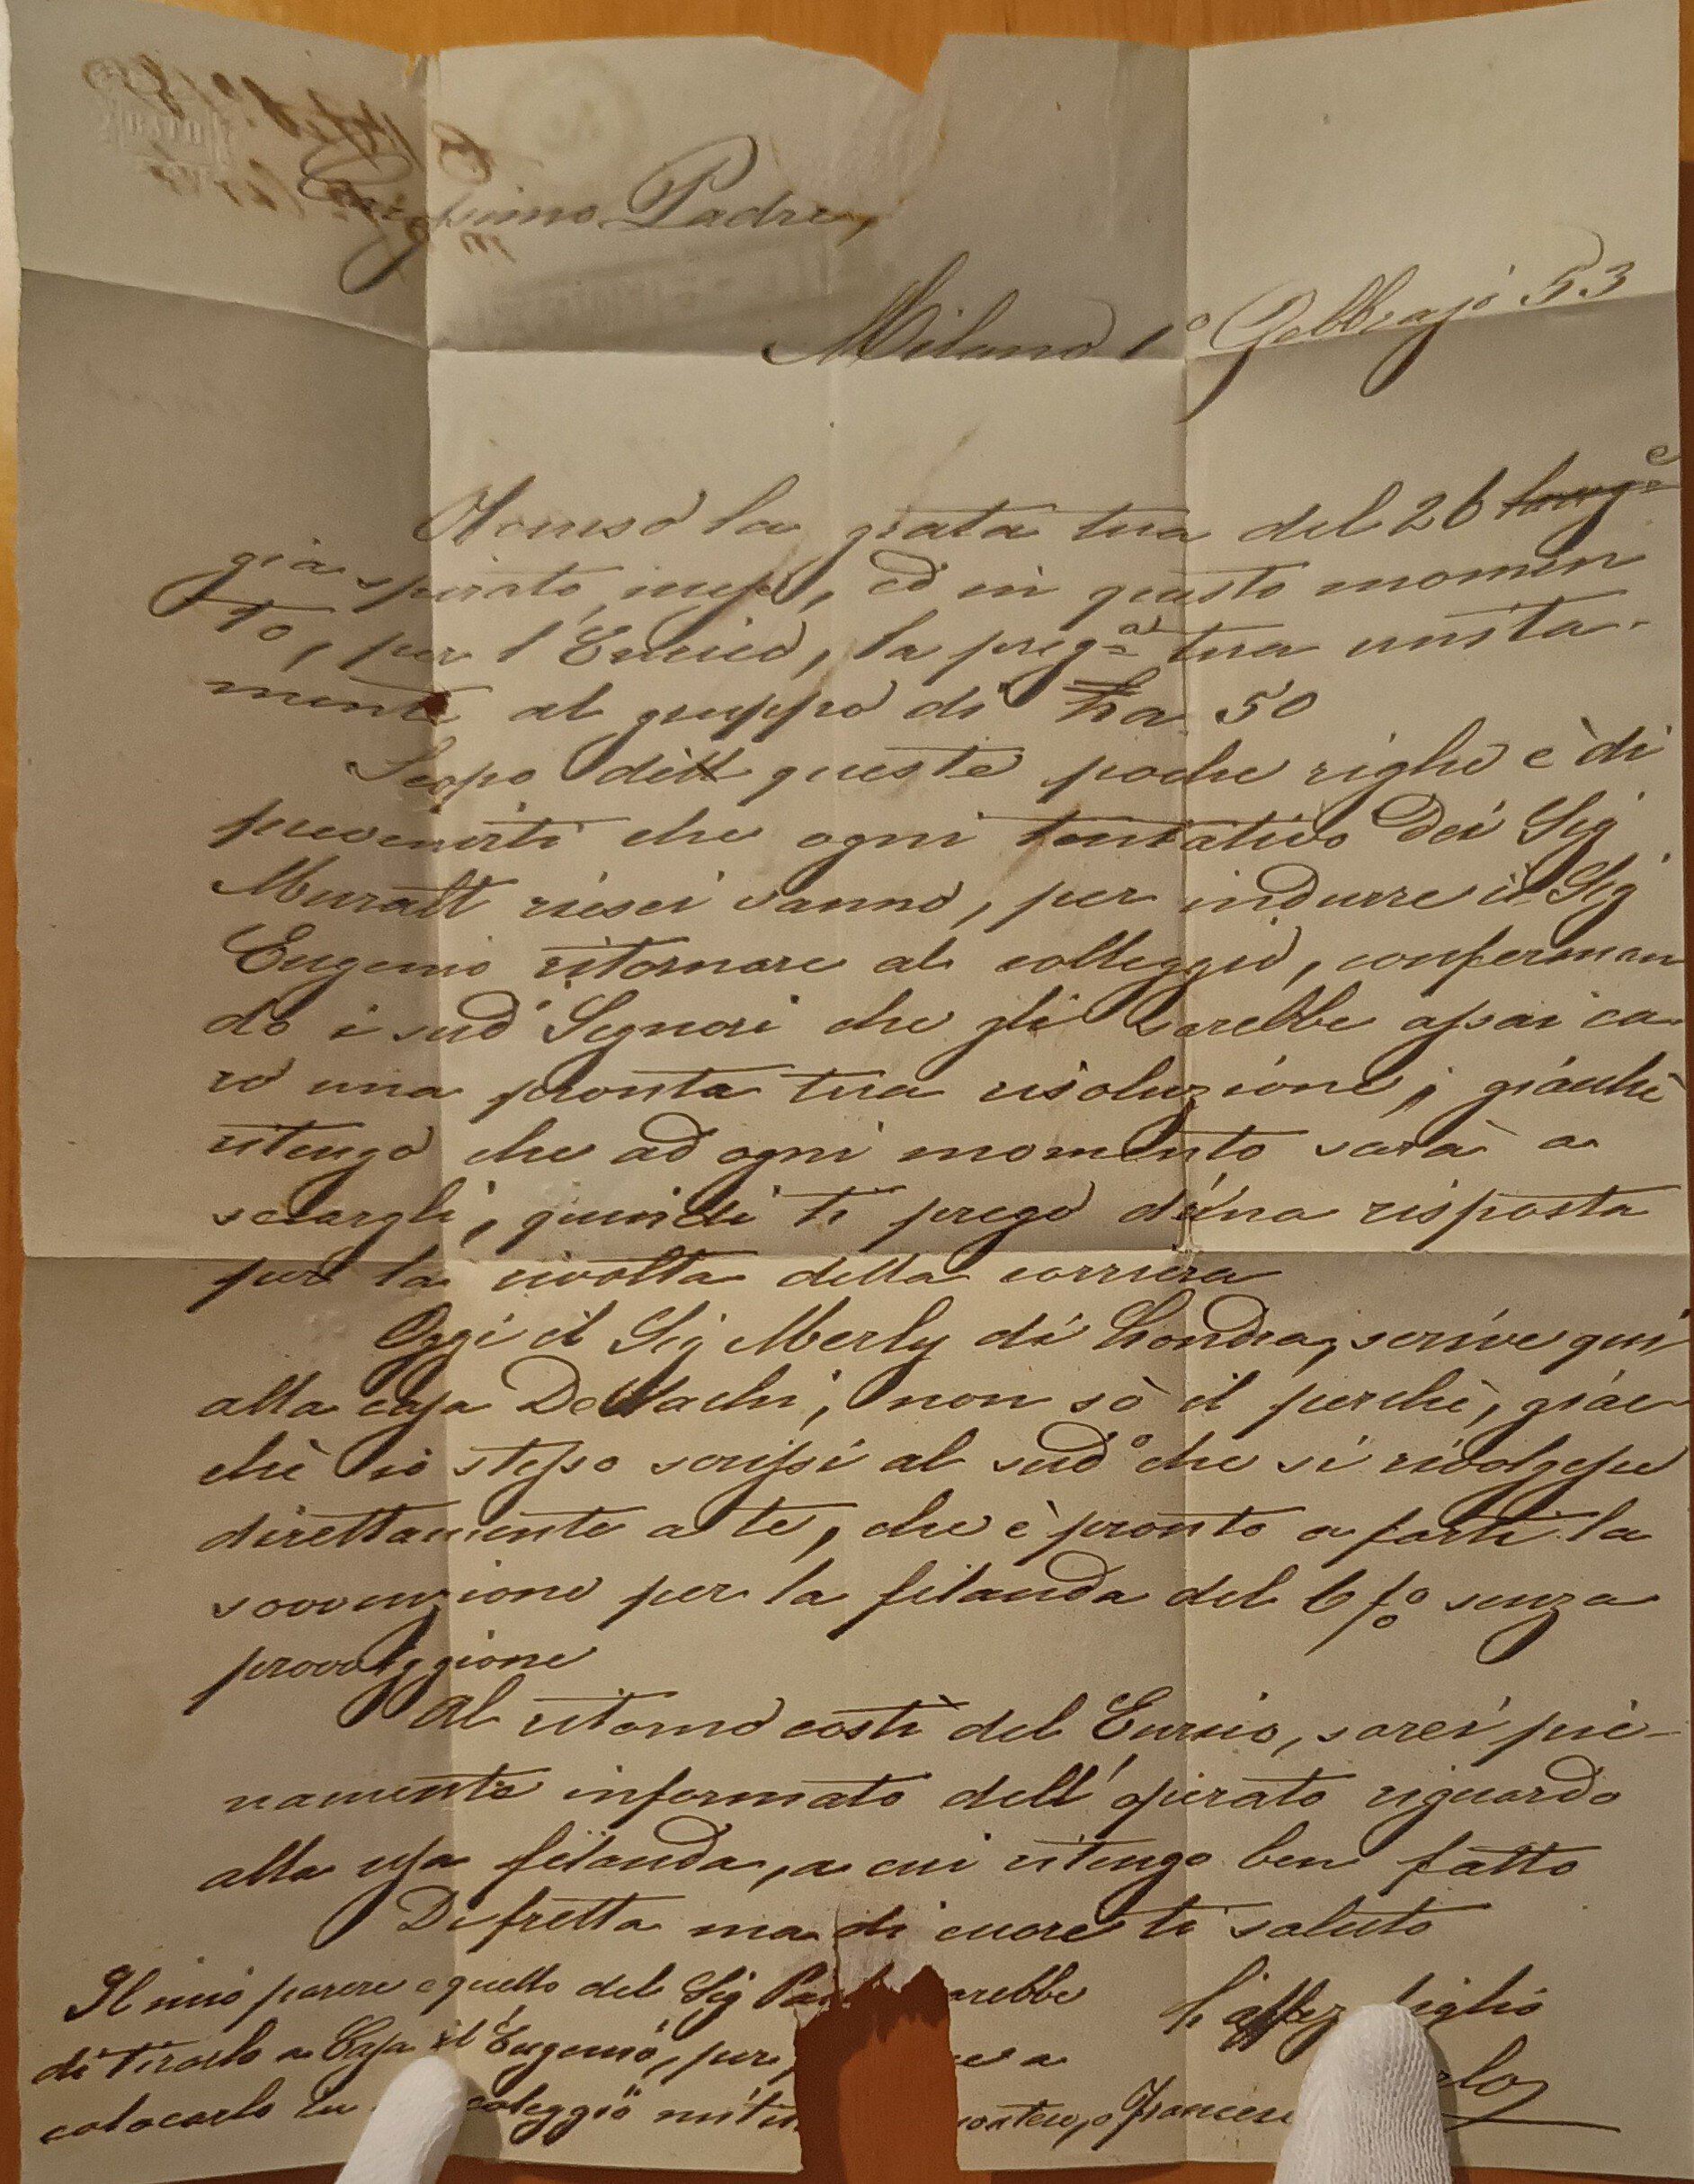 Carissimo Padre,
Milano 1º Febbrajo 53
la grata tua del 26
già spirato mese, ed in questo momen
to, per l'Enrico, la preg.a tua unita-
mente al gruppo di 50
Scopo dell queste poche righe è di
prevenirti che ogni tentativo dei Sig
Muralt riesci vanno, per indurre il Sig
Eugenio ritornare al colleggio, conferman
do i sud' Signori che gli sarebbe assai ca-
ro una pronta tua risoluzione; giacchè
ritengo che ad ogni momento sarà a
seccargli; quindi ti prego d'una risposta
per la rivolta della corriera
Oggi il Sig Merly di Londra, scrive qui
alla casa De; non sò il perchè, giac-
chè io stesso scrissi al sudº che si rivolgesse
direttamente a te, che è pronto a farti la
sovvenzione per la filanda del 6 % senza
provviggione
Al ritorno costì del Enrico, sarei pie-
namente informato dell'operato riguardo
alla filanda, a cui ritengo ben fatto
Di fretta ma di cuore ti saluto
Il mio parere e quello del Sig
di tirarlo a Casa il Eugenio, per
colocarlo in coleggio
L'affez figlio